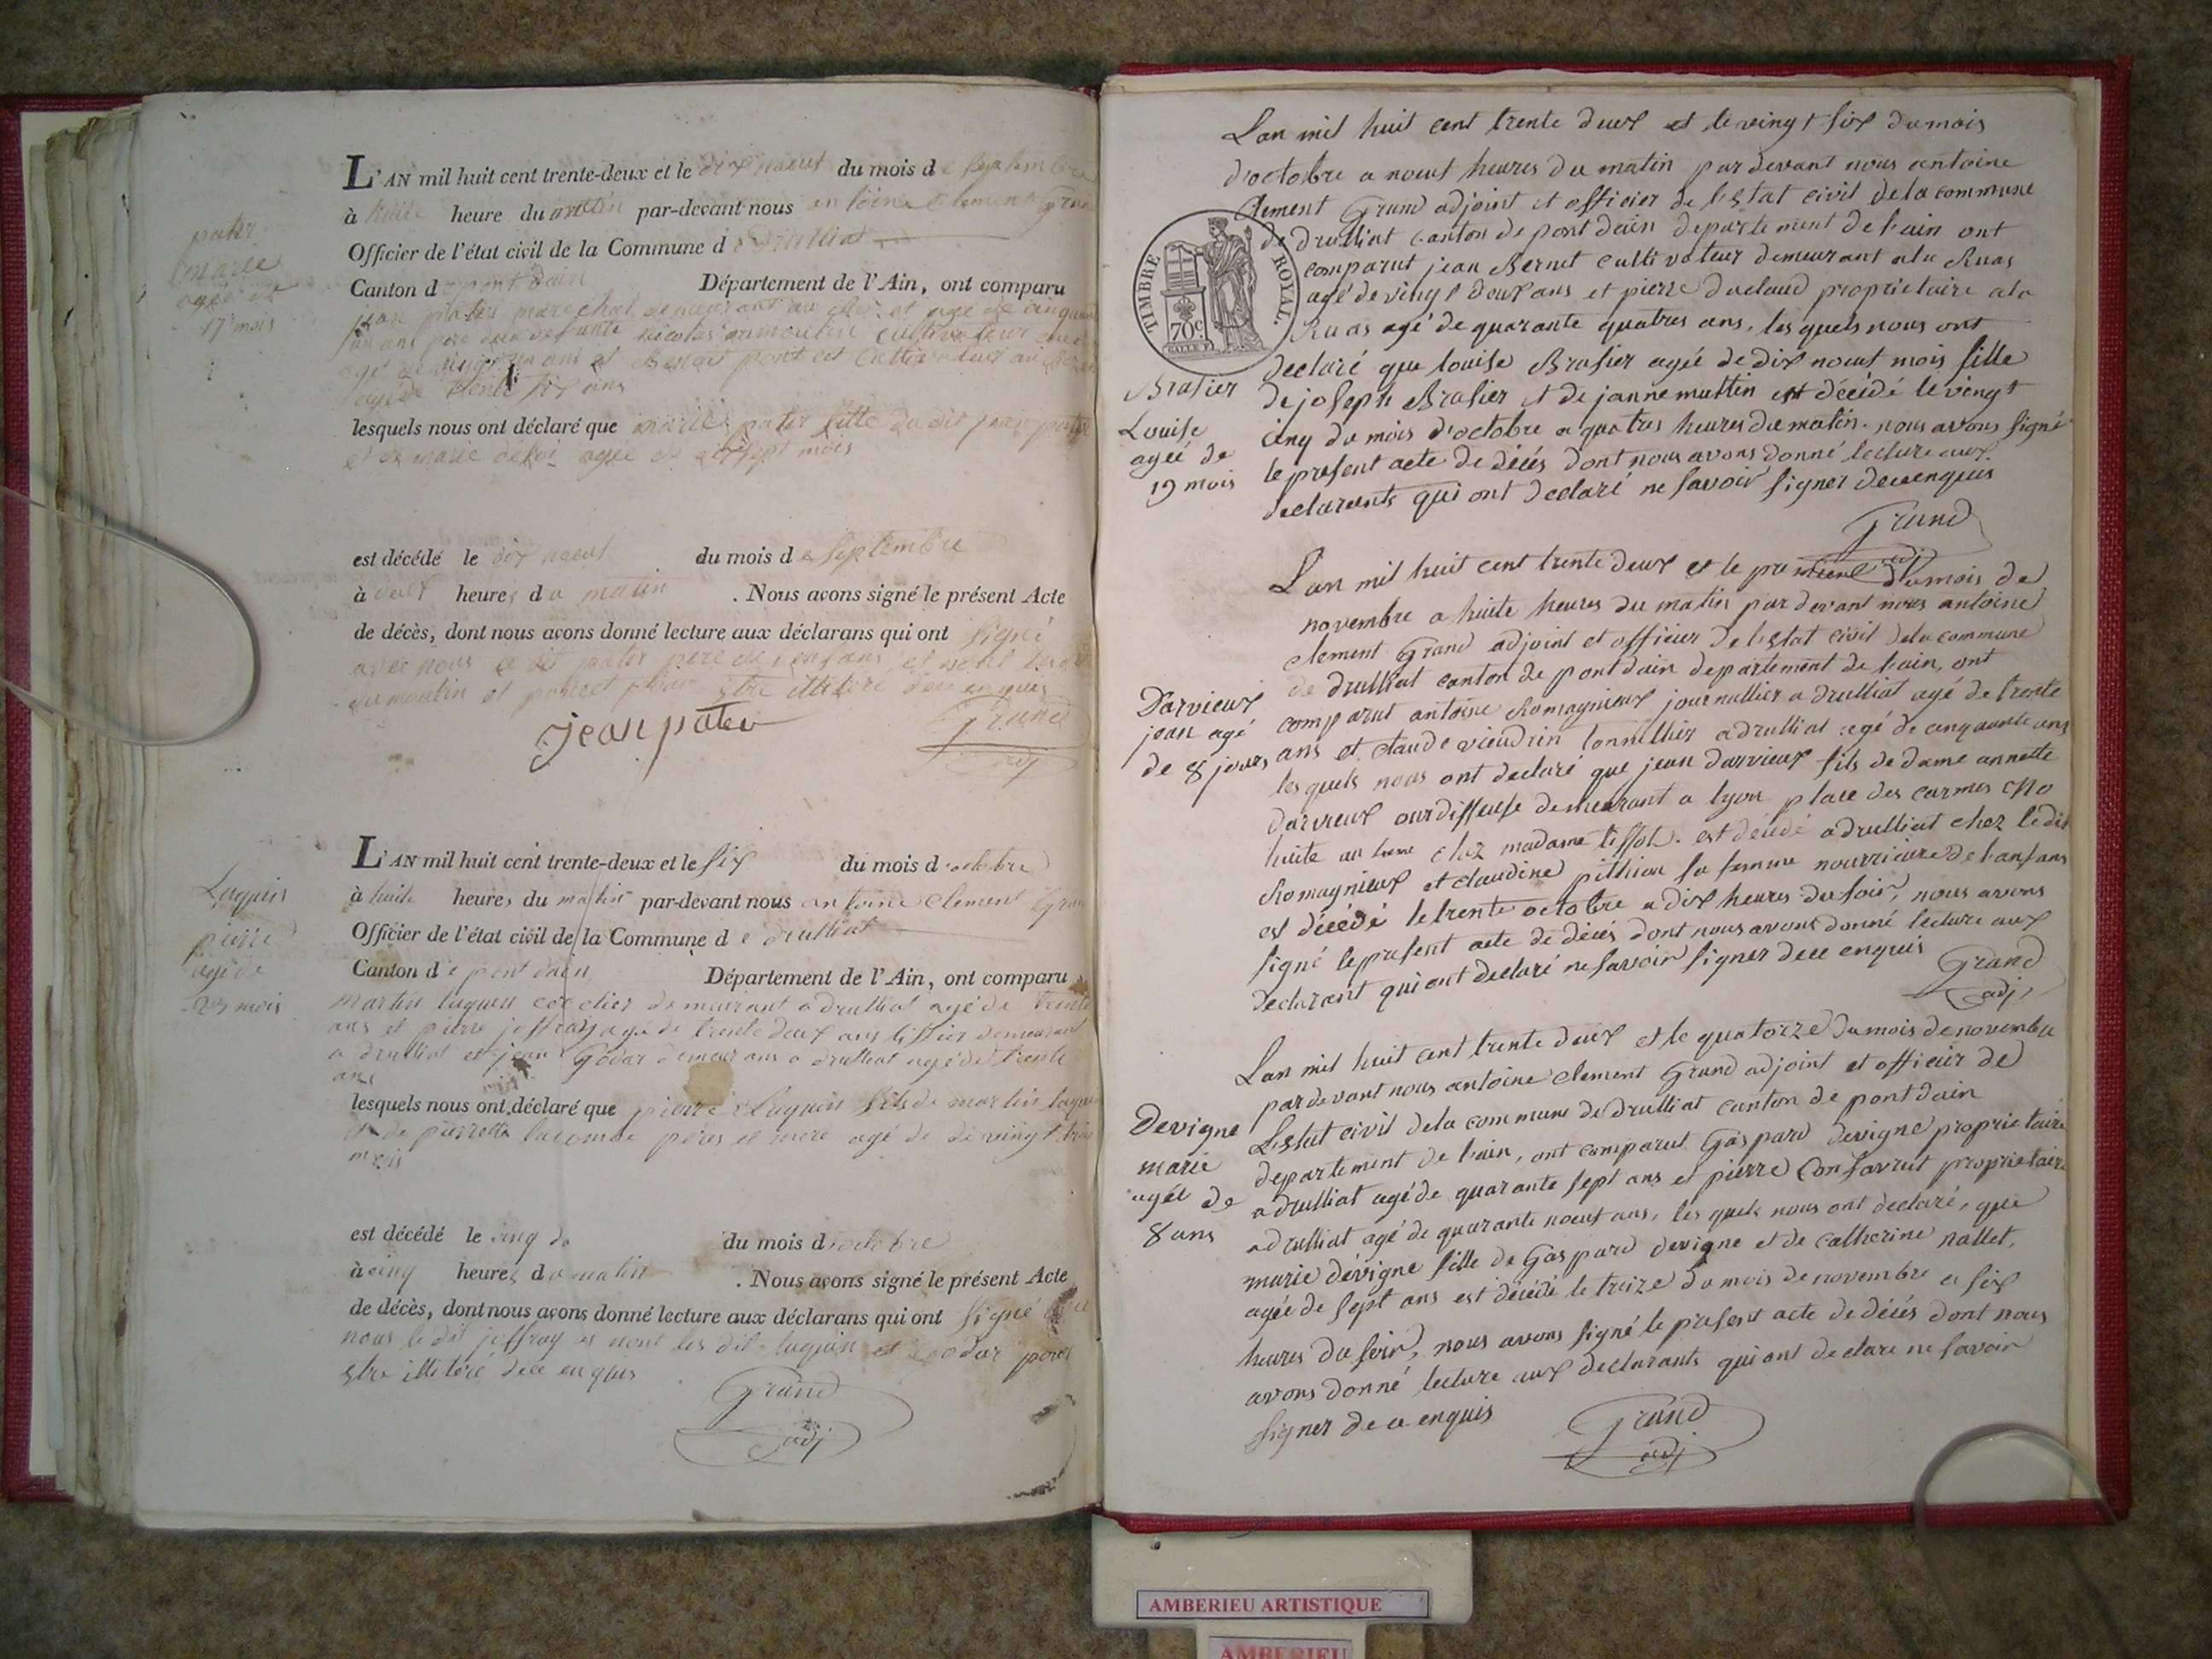 L'AN mil huit cent trente-deux et le dix neuf du mois de septembre
à huite heure du matin par-devant nous antoine Clement Grand
Officier de l'état civil de la Commune de Drulliat
Canton de pont dain Département de l'Ain, ont comparu
jean pater marechal demeurant au et agé de cinquante
ans pere de la defunte nicolas dumoulin cultivateur
agé de ans et Benoit poncet Cultivateur au
agé de trente six ans
lesquels nous ont déclaré que marie pater fille du dit jean pater
et de marie agée de dix sept mois
pater
marie
agée de
17 mois
est décédé le dix neuf du mois de septembre
à deux heures du matin . Nous avons signé le présent Acte
de décès, dont nous avons donné lecture aux déclarans qui ont signé
avec nous le dit pater pere de l'enfans et non les dit
dumoulin et poncet pour estre illiteré dece enquis
jean pater
Grand
adj
L'AN mil huit cent trente-deux et le six du mois d'octobre
à huite heures du matin par-devant nous antoine Clement Grand
Officier de l'état civil de la Commune de drulliat
Canton de pont dain Département de l'Ain, ont comparu
martin luquin demeurant a drulliat agé de trente
ans et pierre joffray agé de trente deux ans tissier demeurant
a drulliat et jean Godar demeurans a drulliat agé de trente
ans
lesquels nous ont déclaré que pierre Luquin fils de martin luquin
et de pierrette lacombe peres et mere agé de de vingt trois
mois
Luquin
pierre
agé de
23 mois
est décédé le cinq du du mois d'octobre
à cinq heures du matin . Nous avons signé le présent Acte
de décès, dont nous avons donné lecture aux déclarans qui ont signé avec
nous le dit joffray et non les dit luquin et godar pour
estre illiteré dece enquis
Grand
adj
Lan mil huit cent trente deux et le vingt six du mois
d'octobre a neuf heures du matin par devant nous antoine
clement Grand adjoint et officier de lestat civil de la commune
de drulliat canton de pont dain departement de l'ain ont
comparut jean Bernet cultivateur demeurant a la Ruas
agé de vingt deux ans et pierre duclaud proprietaire a la
Ruas agé de quarante quatres ans, les quels nous ont
declaré que louise Brasier agée de dix neuf mois fille
de joseph Brasier et de janne muttin est décédé le vingt
cinq du mois d'octobre a quatres heures du matin. nous avons signé
le present acte de décés dont nous avons donné lecture aux
declarants qui ont declaré ne savoir signer dece enquis
TIMBRE ROYAL.
70c
Brasier
Louise
agée de
19 mois
Grand
adj
Lan mil huit cent trente deux et le premier du mois de
novembre a huite heures du matin par devant nous antoine
clement Grand adjoint et officier de lestat civil de la commune
de drulliat canton de pont dain departement de lain, ont
comparut antoine Romagnieux journallier a drulliat agé de trente
ans et claude viendrin tonnellier a drulliat agé de cinquante ans
les quels nous ont declaré que jean darvieux fils de dame annette
darvieux ourdisseuse demeurant a lyon place des carmes No
huite au chez madame tissot. est décédé a drulliat chez le dit
Romagnieux et claudine pithion sa femme nourriciere de lanfans
est décédé le trente octobre a dix heures du soir, nous avons
signé le present acte de décés dont nous avons donné lecture aux
declarant qui ont declaré ne savoir signer dece enquis
Darvieux
jean agé
de 8 jours
Grand
adj
Lan mil huit cent trente deux et le quatorze du mois de novembre
par devant nous antoine clement Grand adjoint et officier de
Lestat civil de la commune de drulliat canton de pont dain
departement de lain, ont comparut Gaspard devigne proprietaire
a drulliat agé de quarante sept ans et pierre Confavrut proprietaire
a drulliat agé de quarante neuf ans, les quels nous ont declaré, que
marie devigne fille de Gaspard devigne et de catherine nallet,
agée de sept ans est décédé le treize du mois de novembre a six
heures du soir, nous avons signé le present acte de décés dont nous
avons donné lecture aux declarants qui ont declare ne savoir
signer de ce enquis
Devigne
marie
agée de
8 ans
Grand
adj
AMBERIEU ARTISTIQUE
AMBERIEU